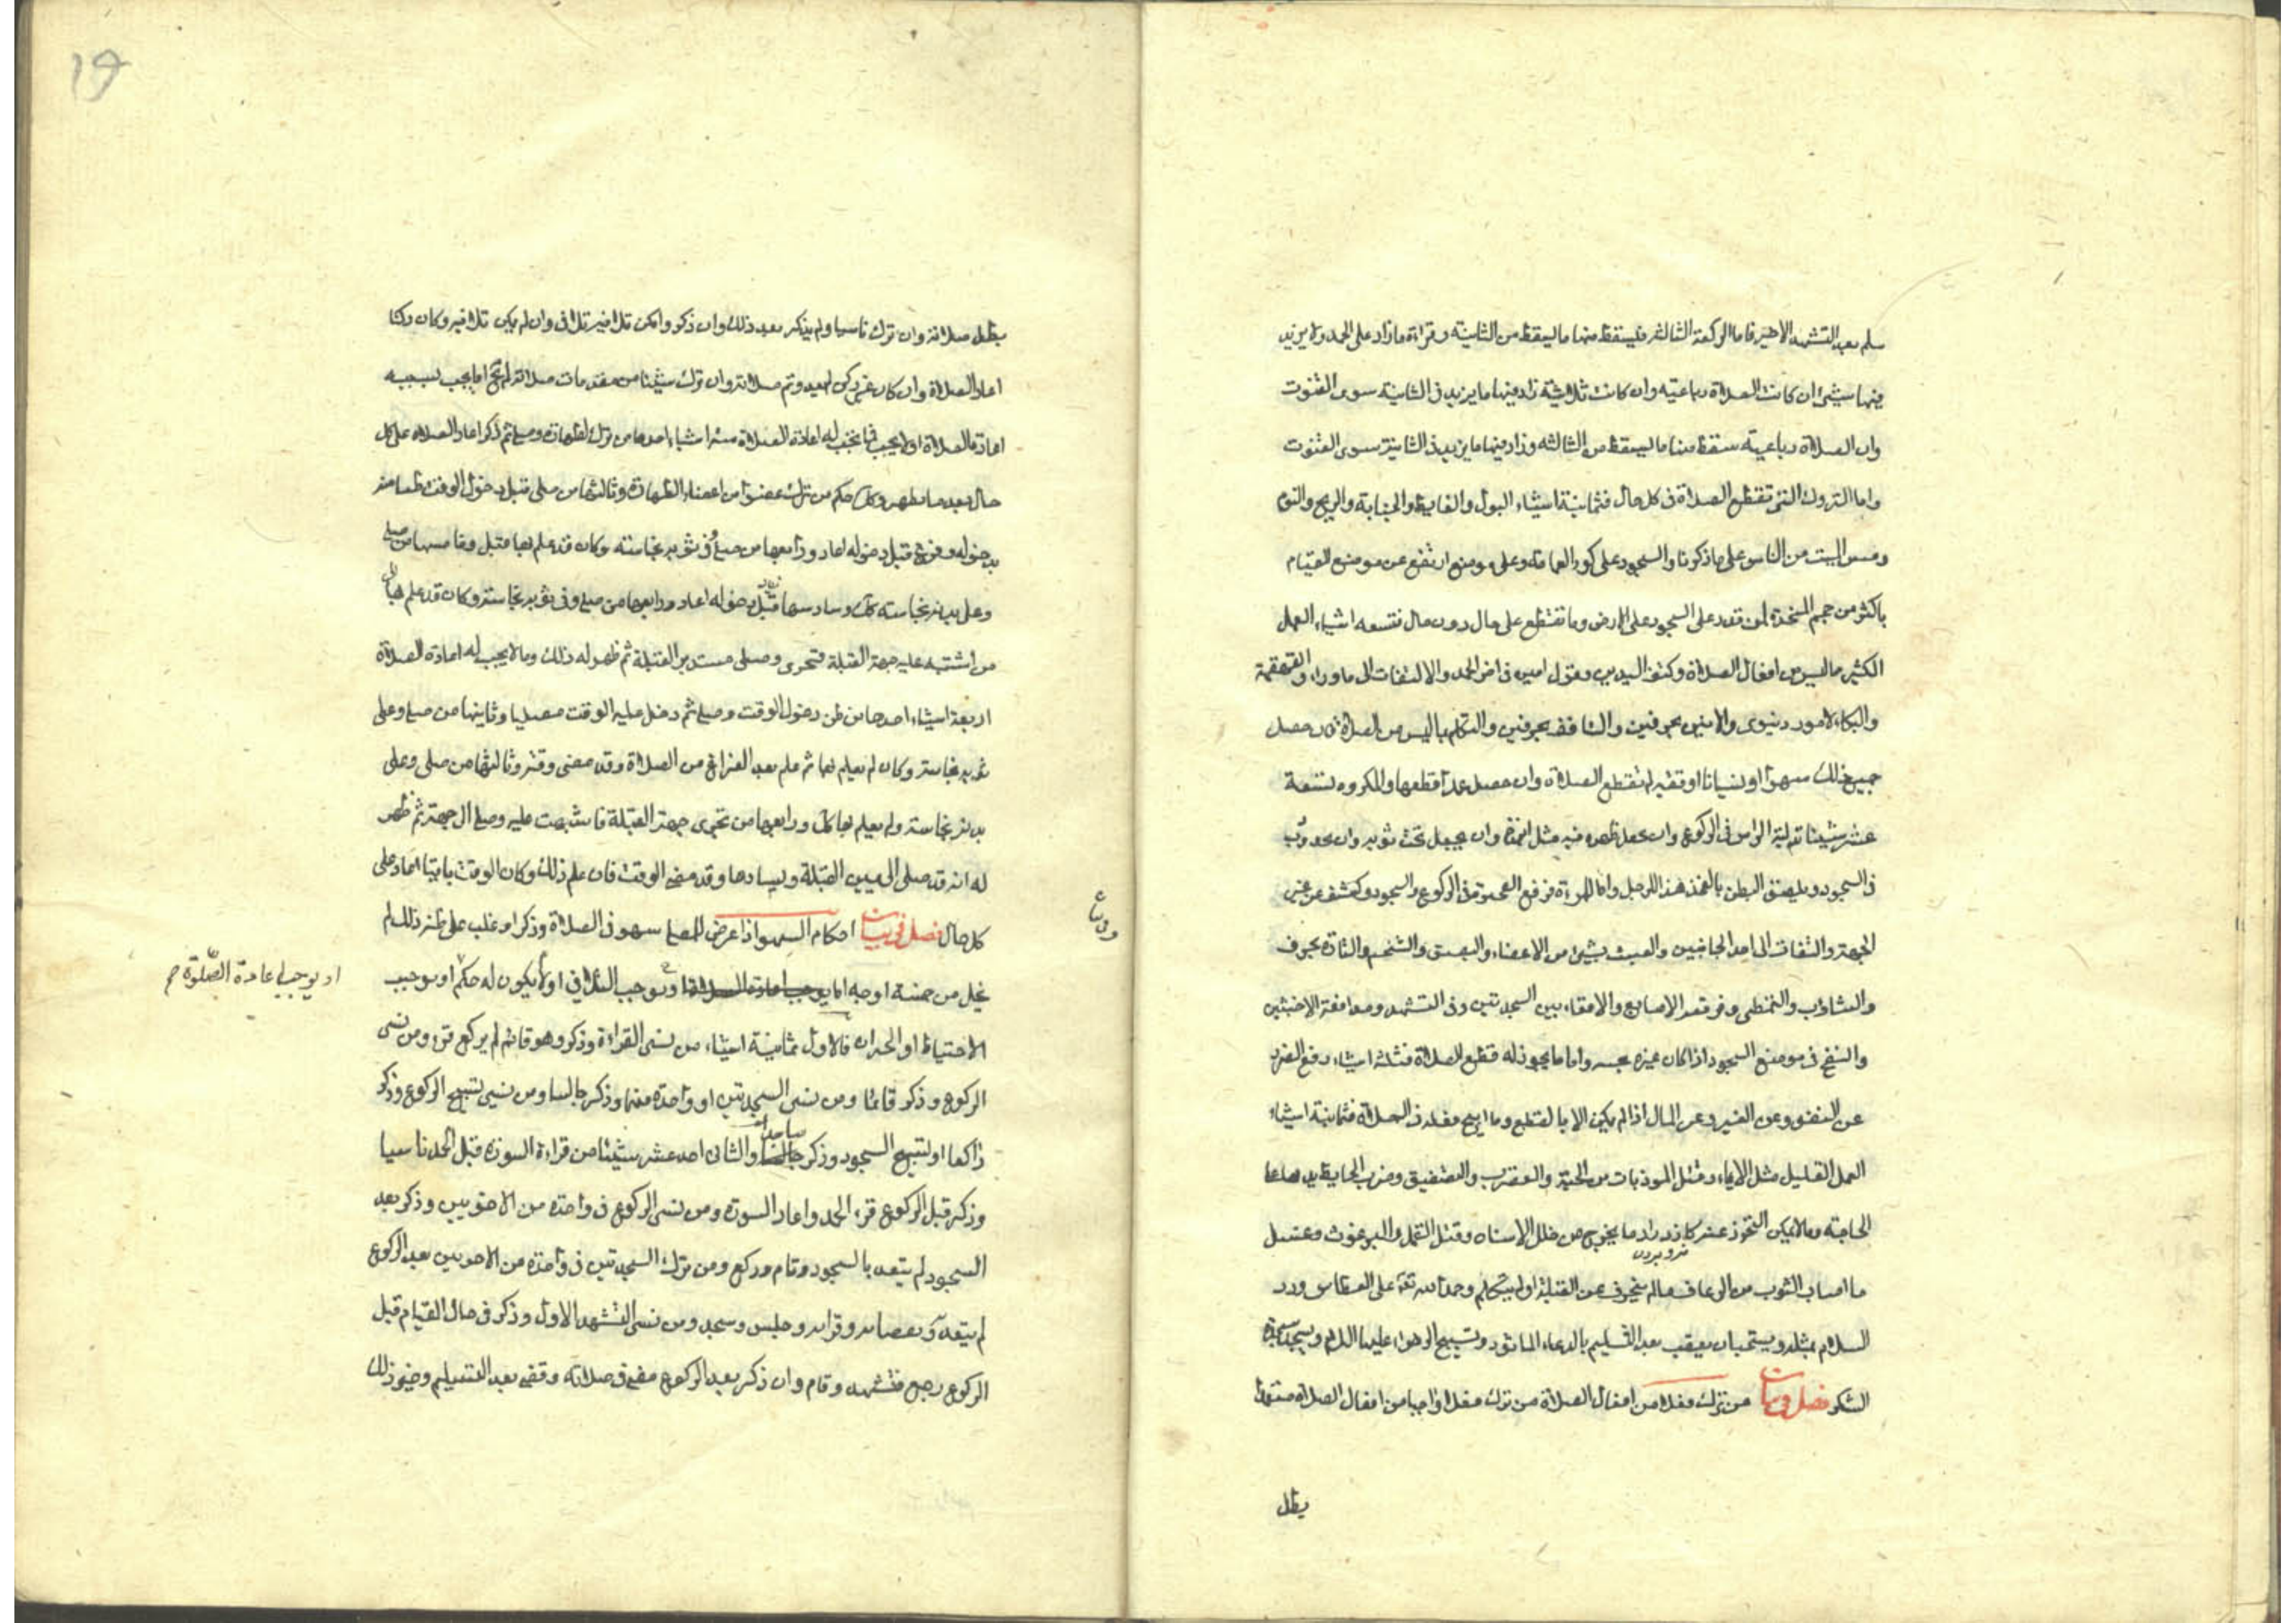 سلم بعد التشهد الاخير فاما الركعة الثالثة فيسقط منها ما يسقط من الثانية وقراءة مازاد على الحمد ولا يزيد
فيها شيئ ان كانت الصلاة رباعيته وان كانت ثلاثية زاد فيها ما يزيد في الثانية سوى القنوت
وان الصلاة رباعية سقط منها ما يسقط من الثالثه وزاد فيها ما يزيد في الثانية سوى القنوت
واما التروك التى تقطع الصلاة فى كل حال فثمانية اشياء البول والغايط والجنابة والريح والنوم
ومس الميت من الناس على ما ذكرنا والسجود على كور العمامة وعلى موضع ارتفع عن موضع القيام
باكثر من حجم المخدة لمن قدر على السجود على الارض وما تقطع على حال دون حال فتسعه اشياء العمل
الكثير ما ليس من افعال الصلاة وكتف اليدين وقول امين فى اخر الحمد والالتفات الى ماوراء والقهقهة
والبكاء لامور دنيوى والانين بحرفين والتافف بحرفين والتكلم بما ليس من الصلاة فان حصل
جميع ذلك سهوا او نسيانا او تقية لم تقطع الصلاة وان حصل عمدا قطعها والمكروه تسعة
عشر شيئا تدلية الراس فى الركوع وان يجعل ظهره فيه مثل وان يجعل تحت ثوبه وان يحدودب
فى السجود ويلصق البطن بالفخذ هذا للرجل واما المراة فرفع العجيزة فى الركوع والسجود وكشف عن غير
الجبهة والتفات الى احد الجانبين والعبث بشئ من الاعضاء والبصق والتنخم والتاوه بحرف
والتثاوب والتمطى وفرقعة الاصابع والاقعاء بين السجدتين وفى التشهد ومدافعة الاخبثين
والنفخ فى موضع السجود اذا كان غيره بجنبه واما ما يجوز له قطع الصلاة فثلثة اشياء دفع الضرر
عن النفس وعن الغير وعن المال اذا لم يمكن الا بالقطع وما ابيح فعله فى الصلاة فثمانية اشياء
العمل القليل مثل الايماء وقتل الموذيات من الحية والعقرب والتصفيق وضرب الحايط بيد
الحاجة وما لا يمكن التحرز عنه كازدراد ما يخرج من خلل الاسنان وقتل القمل والبرغوث وغسل
فرو بردن
ما اصاب الثوب من الرعاف ما لم ينحرف عن القبلة او لم يتكلم وحمد الله تعالى على العطاس ورد
السلام بمثله ويستحب ان يعقب بعد التسليم بالدعاء الماثور وتسبيح الزهراء عليها السلام ويسجد سجدة
الشكر فصل فى بيان من ترك فعلا من افعال الصلاة من ترك فعلا واجبا من افعال الصلاة متعمدا
بطل
19
بطل صلاته وان ترك ناسيا ولم يذكر بعد ذلك وان ذكر وامكن تلافيه تلافى وان لم يمكن تلافيه وكان ركنا
اعاد الصلاة وان كان غير ركن لم يعد وتم صلاته وان ترك شيئا من مقدمات صلاته لم تخل اما يجب بسببه
اعادة الصلاة او لا يجب فما يجب له اعادة الصلاة ستة اشياء احدها من ترك الطهارة وصلى ثم ذكر اعاد الصلاة على كل
حال بعد ما تطهر وكذلك حكم من ترك عضوا من اعضاء الطهارة وثالثها من صلى قبل دخول الوقت ظنا منه
بدخوله وفرغ قبل دخوله اعاد ورابعها من صلى وفى ثوبه نجاسته وكان قد علم بها قبل وخامسها من صلى
وعلى بدنه نجاسته كذلك وسادسها قبل دخوله اعاد ورابعها من صلى وفى ثوبه نجاسته وكان قد علم بها
من اشتبه عليه جهة القبلة فتحرى وصلى مستدبر القبلة ثم ظهر له ذلك وما لا يجب له اعادة الصلاة
اربعة اشياء احدها من ظن دخول الوقت وصلى ثم دخل عليه الوقت مصليا وثانيها من صلى وعلى
ثوبه نجاسته وكان لم يعلم بها ثم علم بعد الفراغ من الصلاة وقد مضى وقته وثالثها من صلى وعلى
بدنه نجاسته ولم يعلم بها كذلك ورابعها من تحرى جهة القبلة فاشبهت عليه وصلى الى جهة ثم ظهر
له انه قد صلى الى يمين القبلة ويسارها وقد مضى الوقت فان علم ذلك وكان الوقت باقيا اعاد على
كل حال فصل فى بيان احكام السهو اذا عرض للمصلى سهو فى الصلاة وذكر او غلب على ظنه ذلك لم
يخل من خمسة اوجه اما يوجب اعادة الصلاة او يوجب التلافى او لا يكون له حكم او يوجب
او يوجب اعادة الصلوة صح
الاحتياط او الجبران فالاول ثمانية اشياء من نسى القراءة وذكر وهو قائم لم يركع قرء ومن نسى
الركوع وذكر قائما ومن نسى السجدتين او واحدة منهما وذكر جالسا ومن نسى تسبيح الركوع وذكر
راكعا او تسبيح السجود وذكر ساجدا والثانى احد عشر شيئا من قراءة السورة قبل الحمد ناسيا
وذكر قبل الركوع قرء الحمد واعاد السورة ومن نسى الركوع فى واحدة من الاخريين وذكر بعد
السجود لم يعتد بالسجود وقام وركع ومن ترك السجدتين فى واحدة من الاخريين بعد الركوع
لم يعتد وجلس وسجد ومن نسى التشهد الاول وذكر فى حال القيام قبل
الركوع رجع فتشهد وقام وان ذكر بعد الركوع مضى فى صلاته وقضى بعد التسليم وخمس ذلك